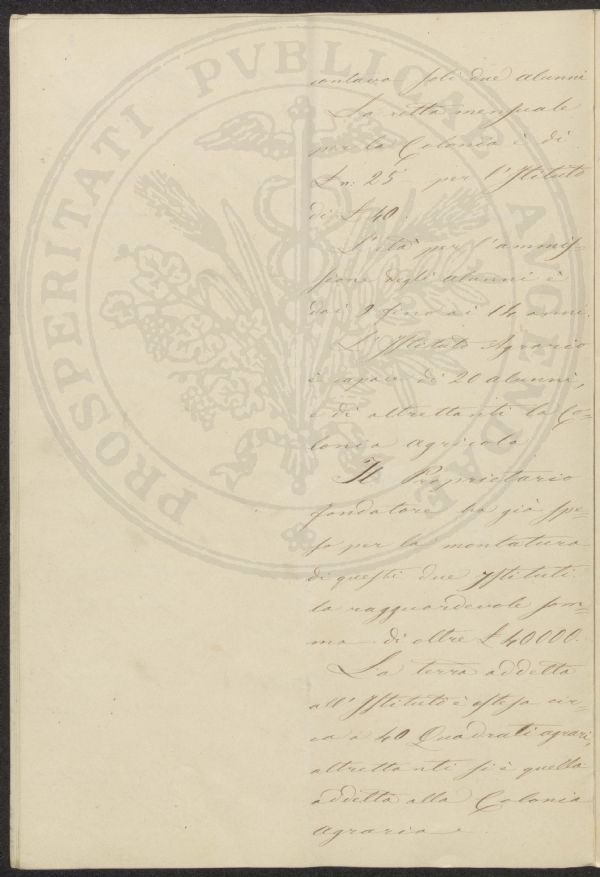 PROSPERITATI PVBLICAE AVGENDAE
contava soli due alunni
La retta mensuale
per la Colonia è di
£ n: 25 per l'Istituto
di £ 40.
L'età per l'ammis=
sione degli alunni è
dai 9 fino ai 14 anni.
L'Istituto Agrario
è capace di 20 alunni,
e di altrettanti la Co=
lonia agricola
Il Proprietario
fondatore ha già spe=
so per la montatura
di questi due Istituti
la ragguardevole som=
ma di oltre £ 40000.
La terra addetta
all'Istituto è estesa cir=
ca a 40 Quadrati agrari,
altrettanti si è quella
addetta alla Colonia
agraria.